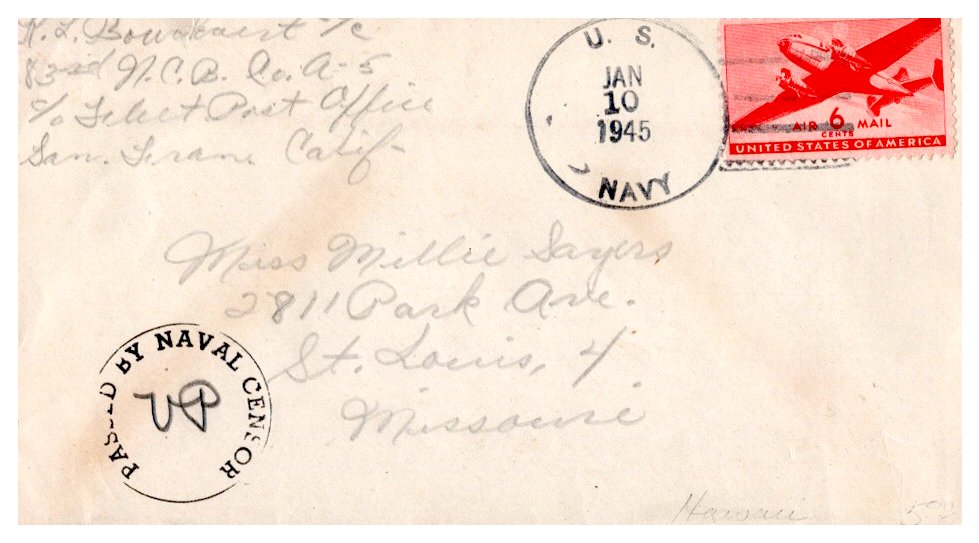 83rd N.C.B. Co. A-5
c/o Fleet Post Office
San. Fran. Calif-
U. S.
JAN
10
1945
NAVY
AIR 6 MAIL
CENTS
UNITED STATES OF AMERICA
Miss Millie Sayers
2811 Park Ave.
St. Louis, 4
Missouri
PASSED BY NAVAL CENSOR
Hawaii